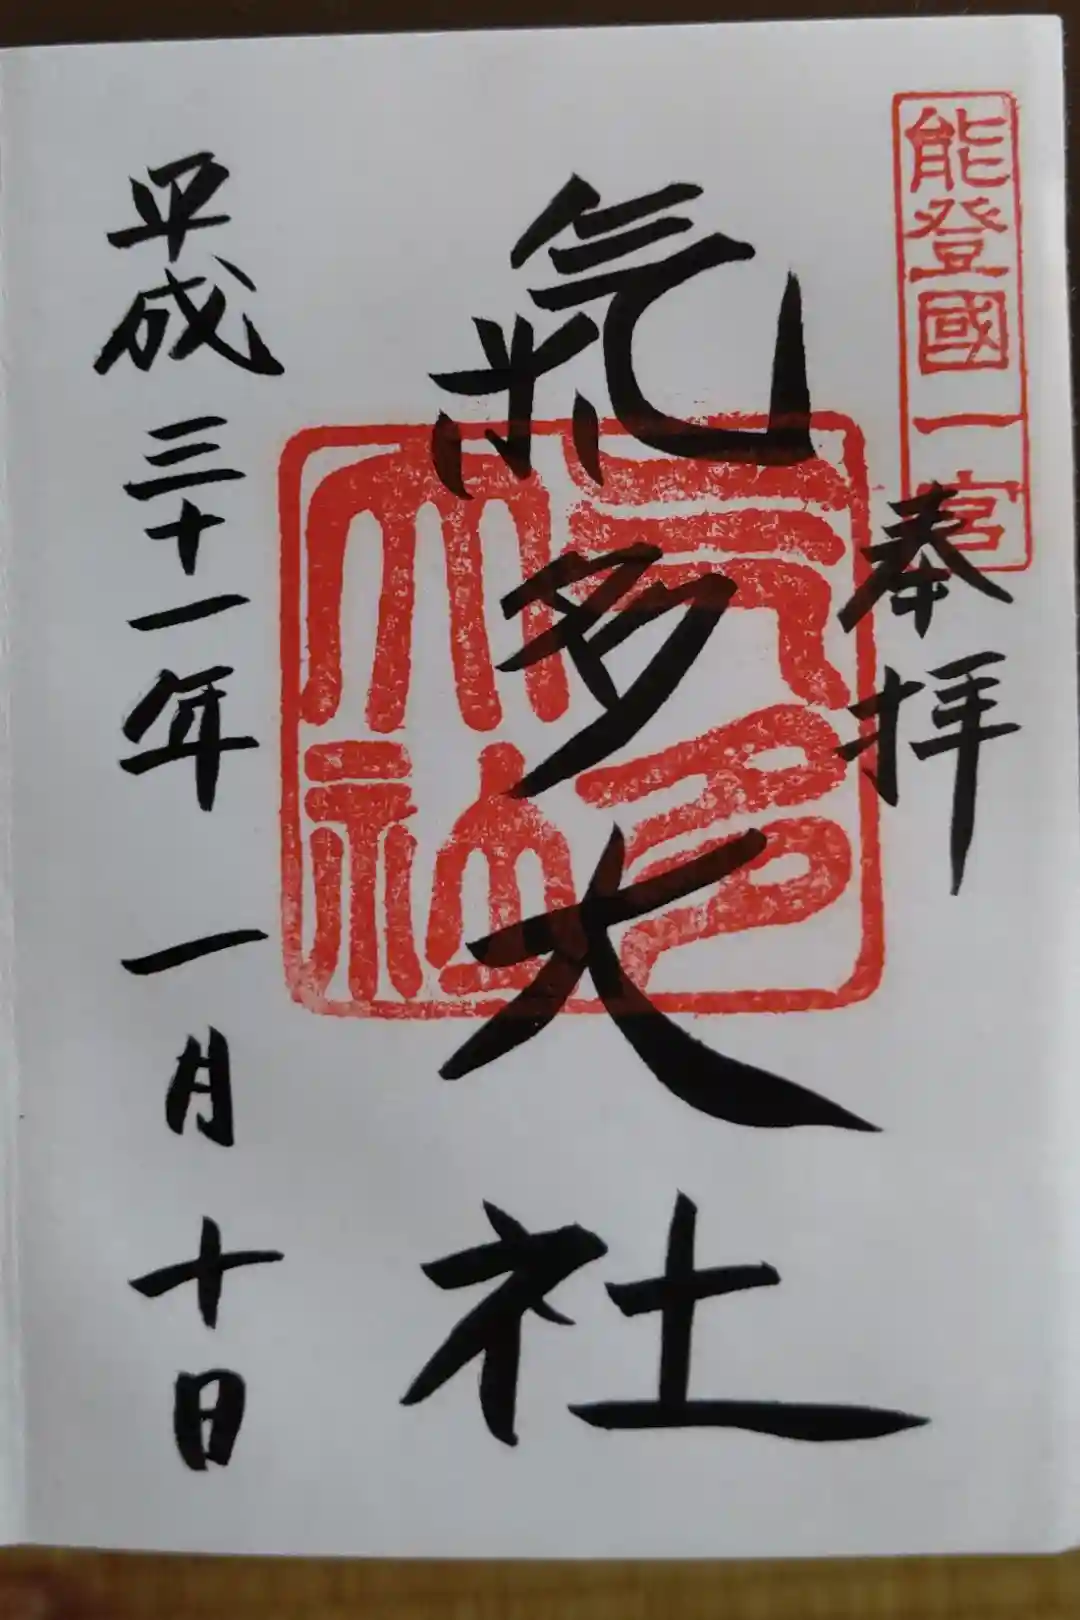 能登國一宮
奉拝
氣多大社
气多大社
平成三十一年 一月 十日